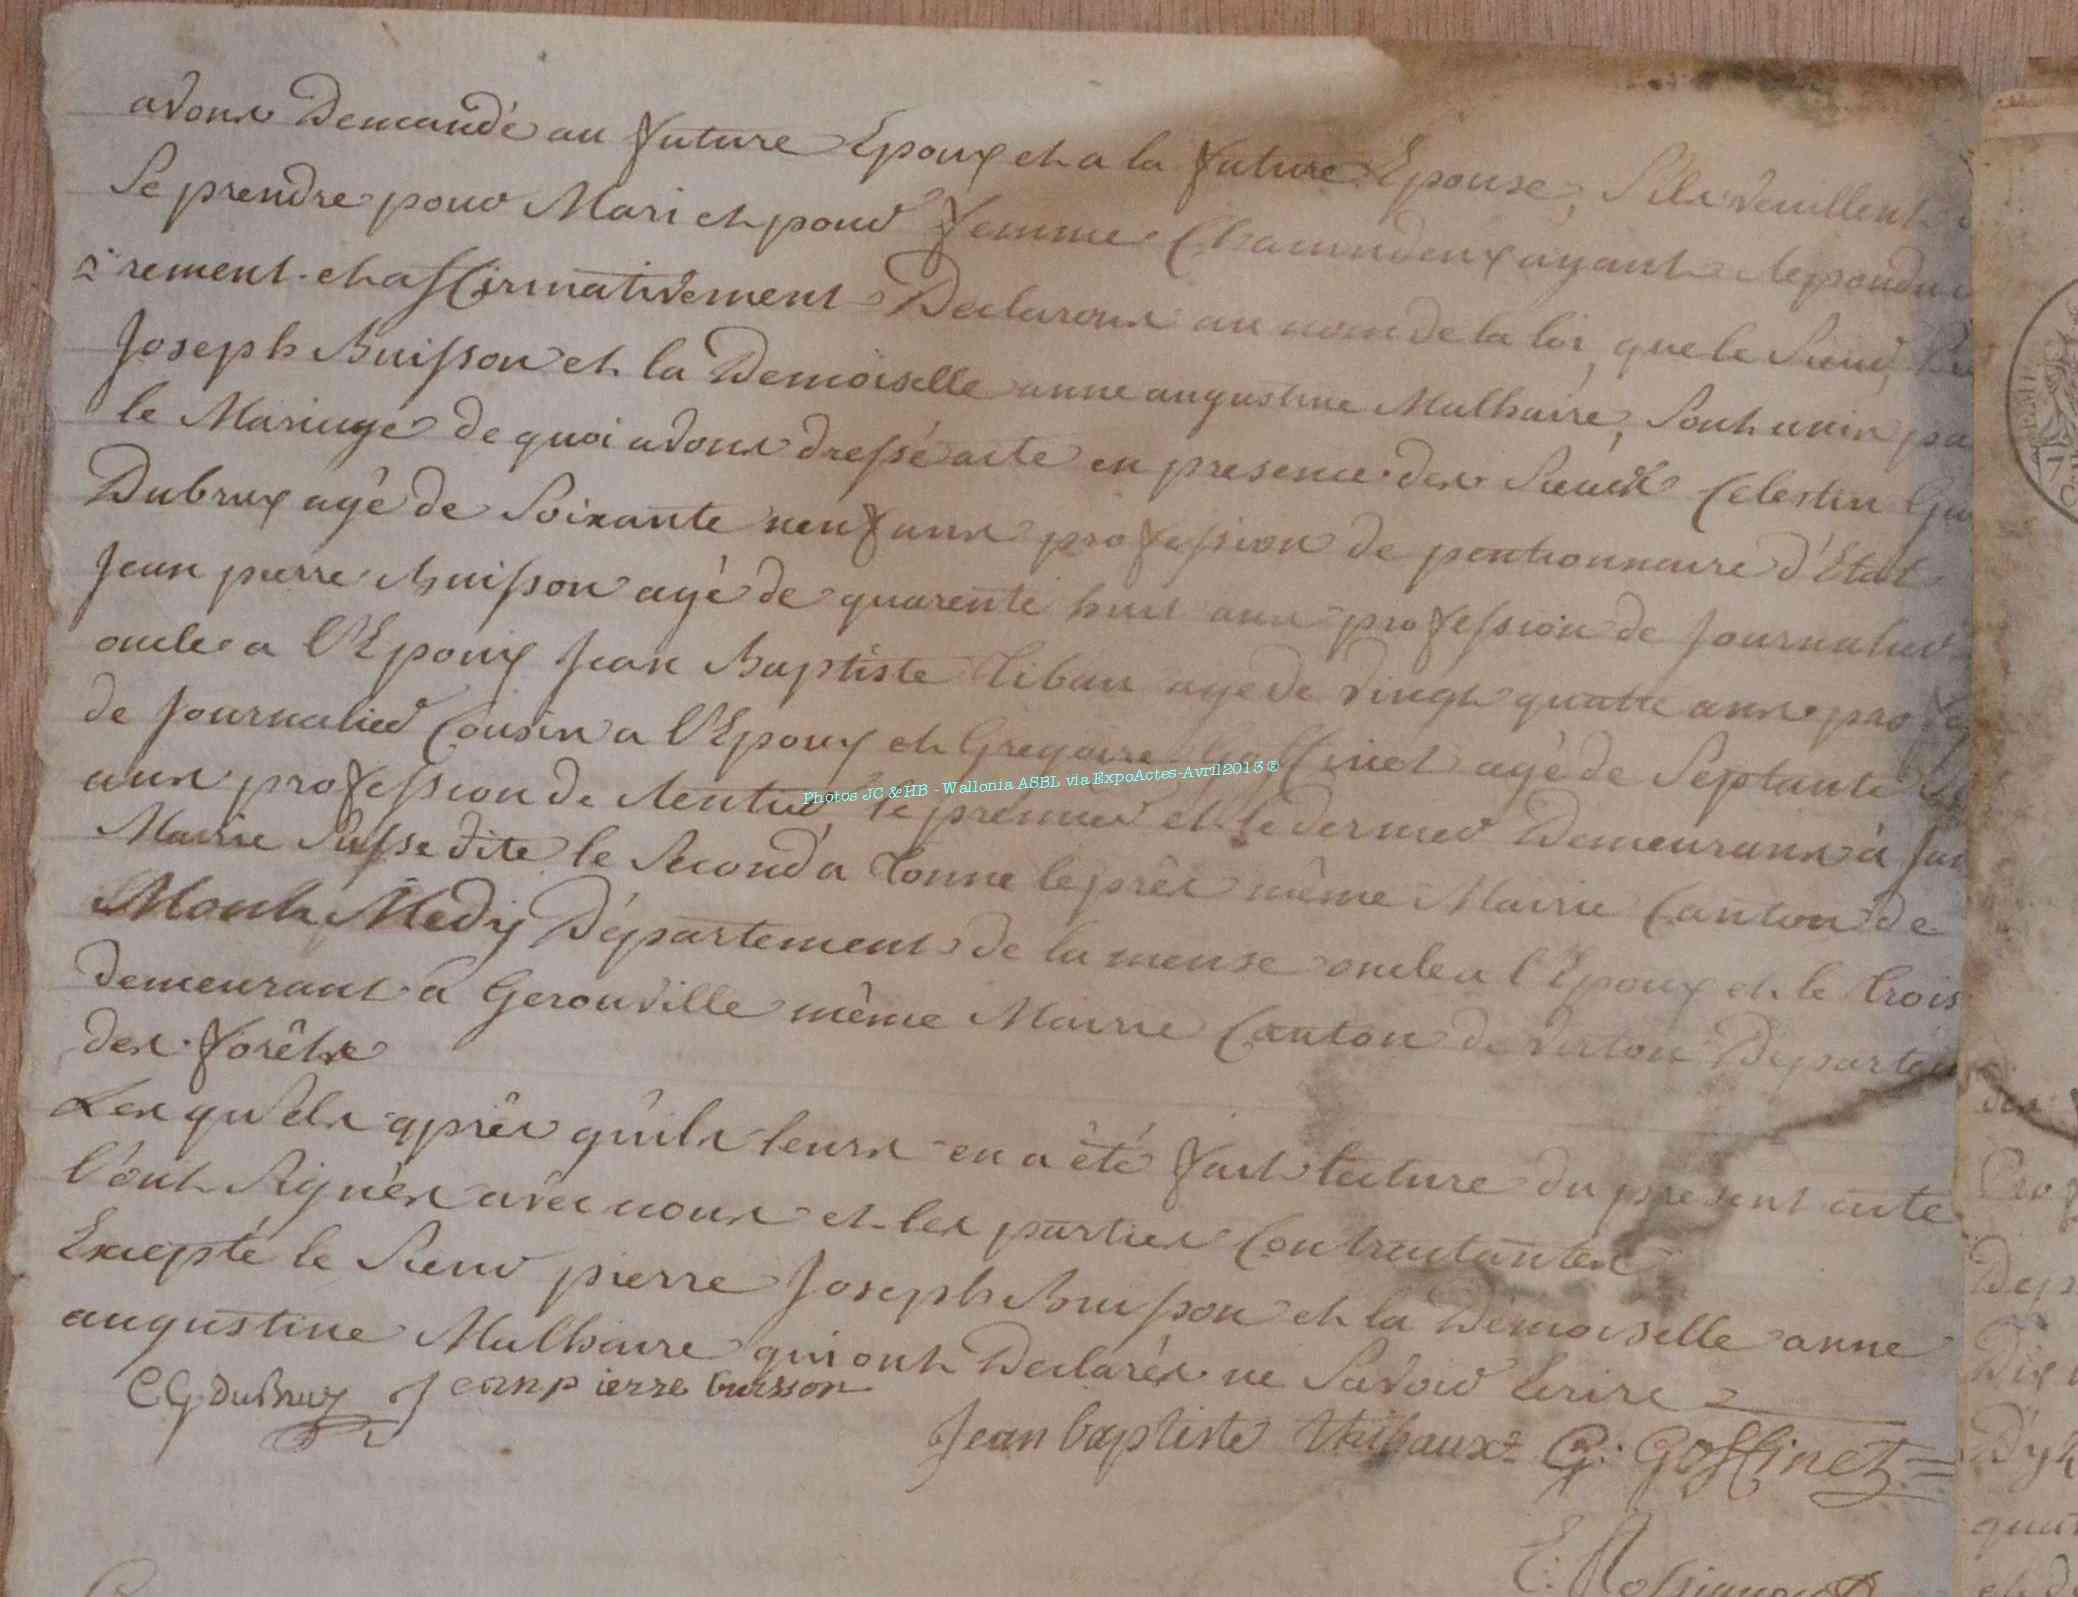 avons Demandé au future Epoux et a la future Epouse, S'ils veuillent
Se prendre pour Mari et pour femme Chacun deux ayant Repondu
rement et affirmativement Declarons au nom de la loi, que le Sieur
Joseph Buisson et la Demoiselle anne augustine Malhaire, Sont unis
le Mariage de quoi avons dressé acte en presence des Sieurs Celestin
Dubrux agé de Soixante neuf ans profession de pentionnaire d'Etat
Jean pierre Buisson agé de quarente huit ans profession de Journalier
oncle a l'Epoux Jean Baptiste Tibau agé de vingt quatre ans
de Journalier Cousin a l'Epoux et Gregoire Goffinet agé de Septante
ans profession de Rentier le premier et le dernier Demeurans à
Mairie Sussedite le Second a Tonne le près même Mairie Canton de
Mont Medÿ Département de la meuse oncle a l'Epoux et le trois
demeurant a Gerouville même Mairie Canton de Virton Departe
des forêts
Les quels après qu'ils leurs en a été fait lecture du present acte
l'ont Signés avec nous et les parties Contractantes
Excepté le Sieur pierre Joseph Buisson et la Demoiselle anne
augustine Malhaire qui ont Declarés ne Savoir Ecrire
CG Dubrux Jean pierre buisson
Jean baptiste thibaux G: Goffinet
Photos JC & HB - Wallonia ASBL via ExpoActes-Avril2013 ©